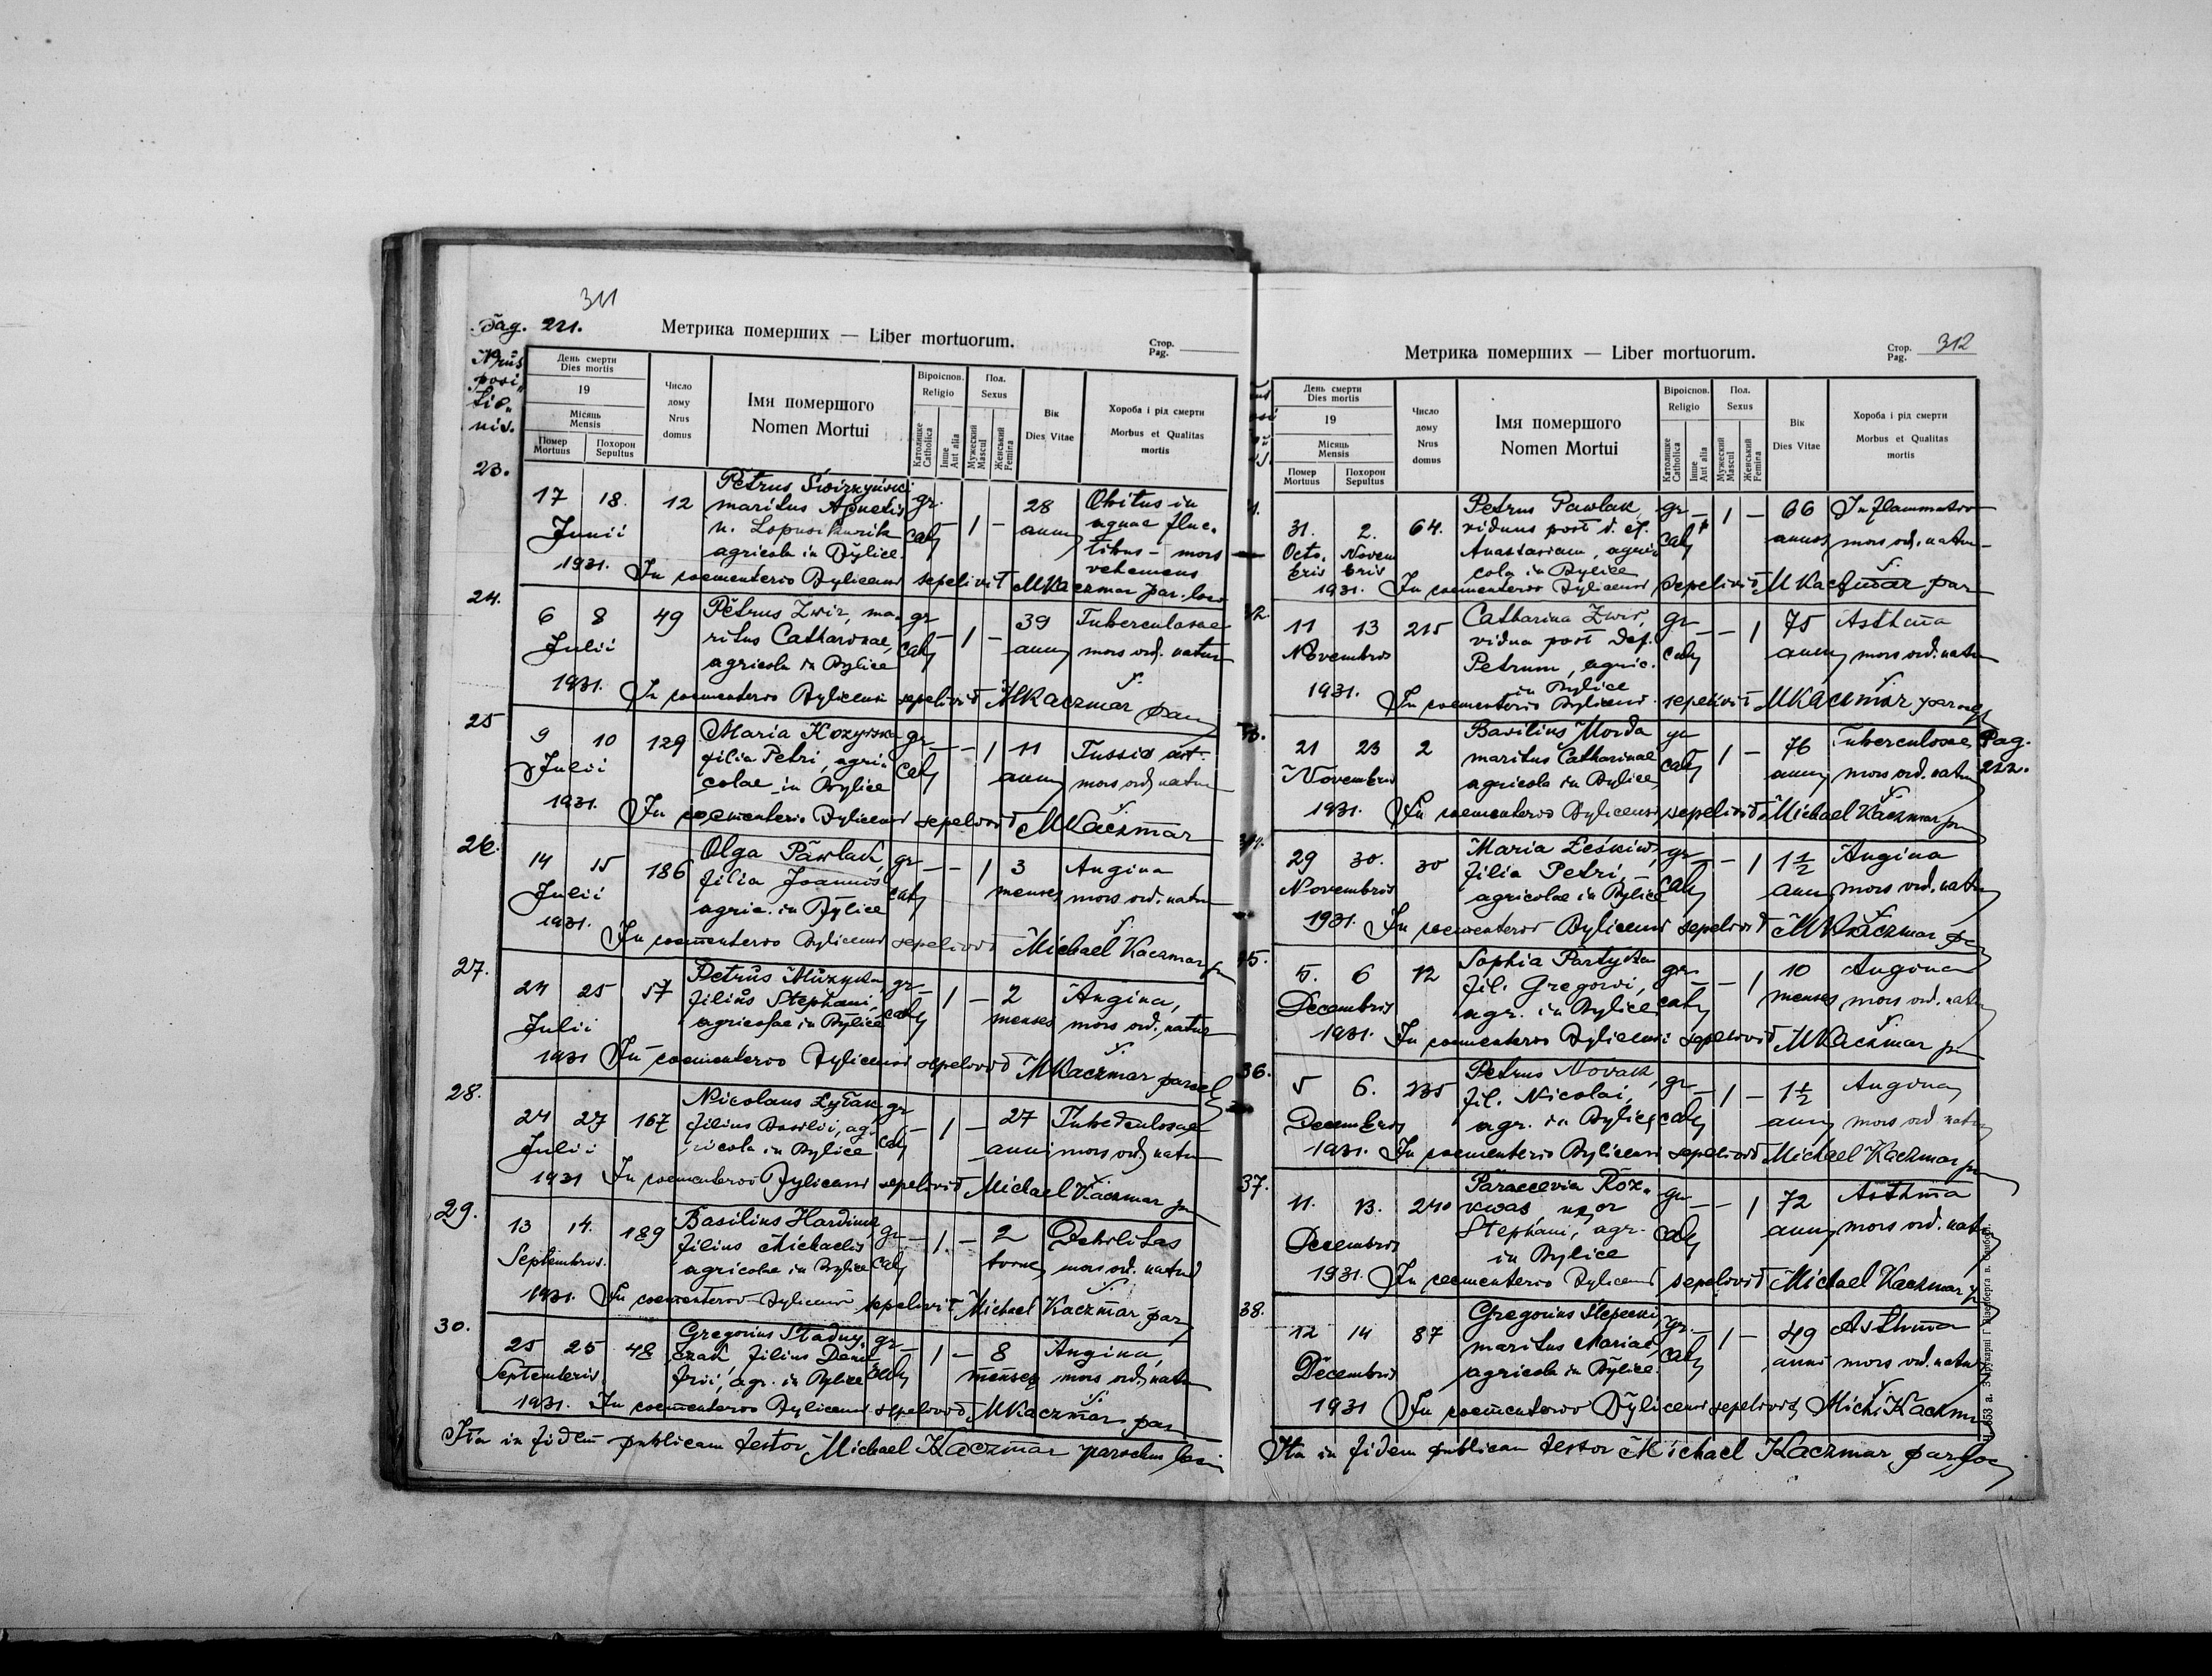 311
Pag. 221.
Метрика померших — Liber mortuorum.
Стор.
Pag.
Nrus
posi
tio
nis.
День смерти
Dies mortis
19
Місяць
Mensis
Помер
Mortuus
Похорон
Sepultus
Число
дому
Nrus
domus
Імя помершого
Nomen Mortui
Віроіспов.
Religio
Католицке
Catholica
Інше
Aut alia
Пол.
Sexus
Мужеский
Mascul
Женський
Femina
Вік
Dies Vitae
Хороба і рід смерти
Morbus et Qualitas
mortis
23.
17 18. 12 Petrus gr. — 1 — 28 Obitus in
Junii maritus Agnetis cath annus aquae fluc
n. tibus — mors
agricola in Bylice. vehemens
1931. In coementerio Bylicensi sepelivit MKaczmar par. loci
24.
6 8 49 Petrus Zwir, ma gr — 1 — 39 Tuberculosae
Julii ritus Catharinae, cath annus mors ord. natur
agricola in Bylice
1931. In coementerio Bylicensi sepelivit MKaczmar par
25
9 10 129 Maria gr — — 1 11 Tussis
Julii filia Petri, agri cath annus mors ord natur
colae in Bylice
1931. In coementerio Bylicensi sepelivit MKaczmar
26.
14 15 186 Olga Pawlak, gr — — 1 3 Angina
Julii filia Joannis cath menses mors ord. natur
agric. in Bylice
1931. In coementerio Bylicensi sepelivit Michael Kaczmar
27.
24 25 57 Petrus Muzyka, gr — 1 — 2 Angina,
Julii filius Stephani, cath menses mors ord. natur
agricolae in Bylice
1931 In coementerio Bylicensi sepelivit MKaczmar paroch
28.
24 27 167 Nicolaus gr — 1 — 27 Tuberculosae
Julii filius Basilii, ag cath anni mors ord natur
ricola in Bylice
1931 In coementerio Bylicensi sepelivit Michael Kaczmar
29.
13 14. 189 Basilius gr — 1 — 2 Debilitas
Septembris. filius Michaelis cath mors ord. natur
agricolae in Bylice
1931. In coementerio Bylicensi sepelivit Michael Kaczmar, par
30.
25 25 48 Gregorius Stadny gr — 1 — 8 Angina,
Septembris czak, filius Deme cath menses mors ord. natur
trii, agr. in Bylice
1931. In coementerio Bylicensi sepelivit MKaczmar par
Ita in fidem publicam testor Michael Kaczmar parochus loci
Метрика померших — Liber mortuorum.
Стор.
Pag. 312
День смерти
Dies mortis
19
Місяць
Mensis
Помер
Mortuus
Похорон
Sepultus
Число
дому
Nrus
domus
Імя помершого
Nomen Mortui
Віроіспов.
Religio
Католицке
Catholica
Інше
Aut alia
Пол.
Sexus
Мужеский
Mascul
Женський
Femina
Вік
Dies Vitae
Хороба і рід смерти
Morbus et Qualitas
mortis
31. 2. 64. Petrus Pawlak gr — 1 — 66 Inflammatio
Octo Novem viduus post d. ef. cath annos mors ord. natur
bris bris Anastasiam, agri
cola in Bylice
1931. In coementerio Bylicensi sepelivit MKaczmar par
32.
11 13 215 Catharina Zwir, gr — — 1 75 Asthma
Novembris vidua post def. cath annus mors ord. natur
Petrum, agric.
in Bylice
1931. In coementerio Bylicensi sepelivit MKaczmar
33.
21 23 2 Basilius Morda gr 1 — 76 Tuberculosae Pag.
Novembris maritus Catharinae cath annus mors ord. natur 222.
agricola in Bylice
1931. In coementerio Bylicensi sepelivit Michael Kaczmar
34.
29 30. 30 Maria Leskiw, gr — 1 1½ Angina
Novembris filia Petri, cath annus mors ord. natur
agricolae in Bylice
1931. In coementerio Bylicensi sepelivit MKaczmar
35.
5. 6 12 Sophia Partyka gr — — 1 10 Angina
Decembris fil. Gregorii, cath menses mors ord. natur
agr. in Bylice
1931. In coementerio Bylicensi sepelivit MKaczmar
36.
5 6. 235 Petrus Novak, gr — 1 — 1½ Angina
Decembris fil. Nicolai, cath annus mors ord natur
agr. in Bylice
1931. In coementerio Bylicensi sepelivit Michael Kaczmar
37.
11. 13. 240 Parascevia gr — — 1 72 Asthma
Decembris uxor cath annus mors ord. natur
Stephani, agr.
in Bylice
1931. In coementerio Bylicensi sepelivit Michael Kaczmar
38.
12 14 87 Gregorius gr. — 1 — 49 Asthma
Decembris maritus Mariae, cath anni mors ord. natur
agricola in Bylice.
1931 In coementerio Bylicensi sepelivit Mich Kaczmar
Ita in fidem publicam testor Michael Kaczmar par. loci